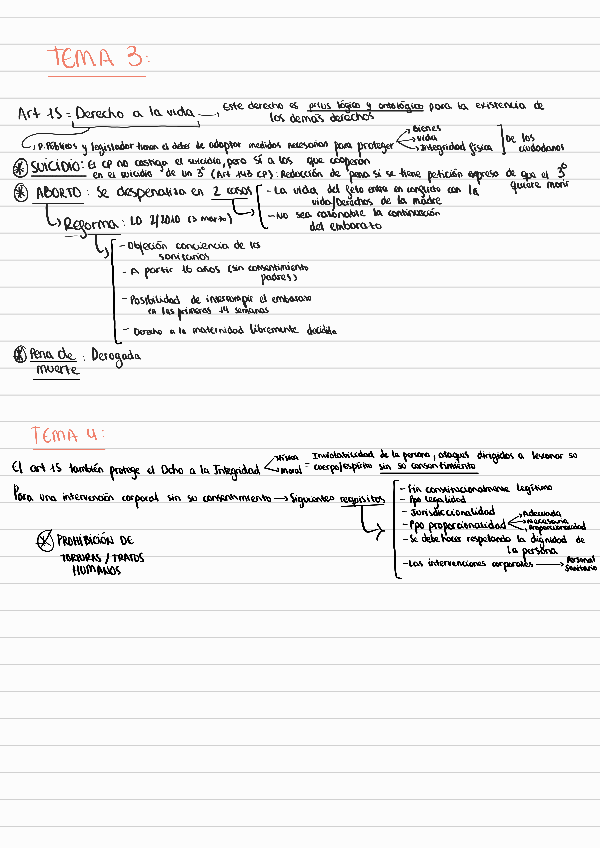 TEMA 3:
Art 15 = Derecho a la vida → Este derecho es prius lógico y ontológico para la existencia de
los demás derechos
P. Públicos y legislador tienen el deber de adoptar medidas necesarias para proteger
Bienes
vida
Integridad física
De los
ciudadanos
* SUICIDIO: El CP no castiga el suicidio, pero sí a los que cooperan
en el suicidio de un 3º (Art 143 CP): Redacción de pena si se tiene petición expresa de que el 3º
quiere morir
* ABORTO: Se despenaliza en 2 casos
- La vida del feto entra en conflicto con la
vida/Derechos de la madre
- No sea razonable la continuación
del embarazo
Reforma: LO 2/2010 (3 marzo)
- Objeción conciencia de los
sanitarios
- A partir 16 años (sin consentimiento
padres)
- Posibilidad de interrumpir el embarazo
en las primeras 14 semanas
- Derecho a la maternidad libremente decidida
* Pena de
muerte: Derogada
TEMA 4:
El art 15 también protege el Dcho a la Integridad
Física
moral
= Inviolabilidad de la persona, ataques dirigidos a lesionar su
cuerpo/espíritu sin su consentimiento
Para una intervención corporal sin su consentimiento → Siguientes requisitos
- Fin constitucionalmente legítimo
- Ppo legalidad
- Jurisdiccionalidad
- Ppo proporcionalidad
Adecuada
Necesaria
Proporcionalidad
- Se debe hacer respetando la dignidad de
la persona
- Las intervenciones corporales → Personal
Sanitario
* PROHIBICIÓN DE
TORTURAS / TRATOS
HUMANOS